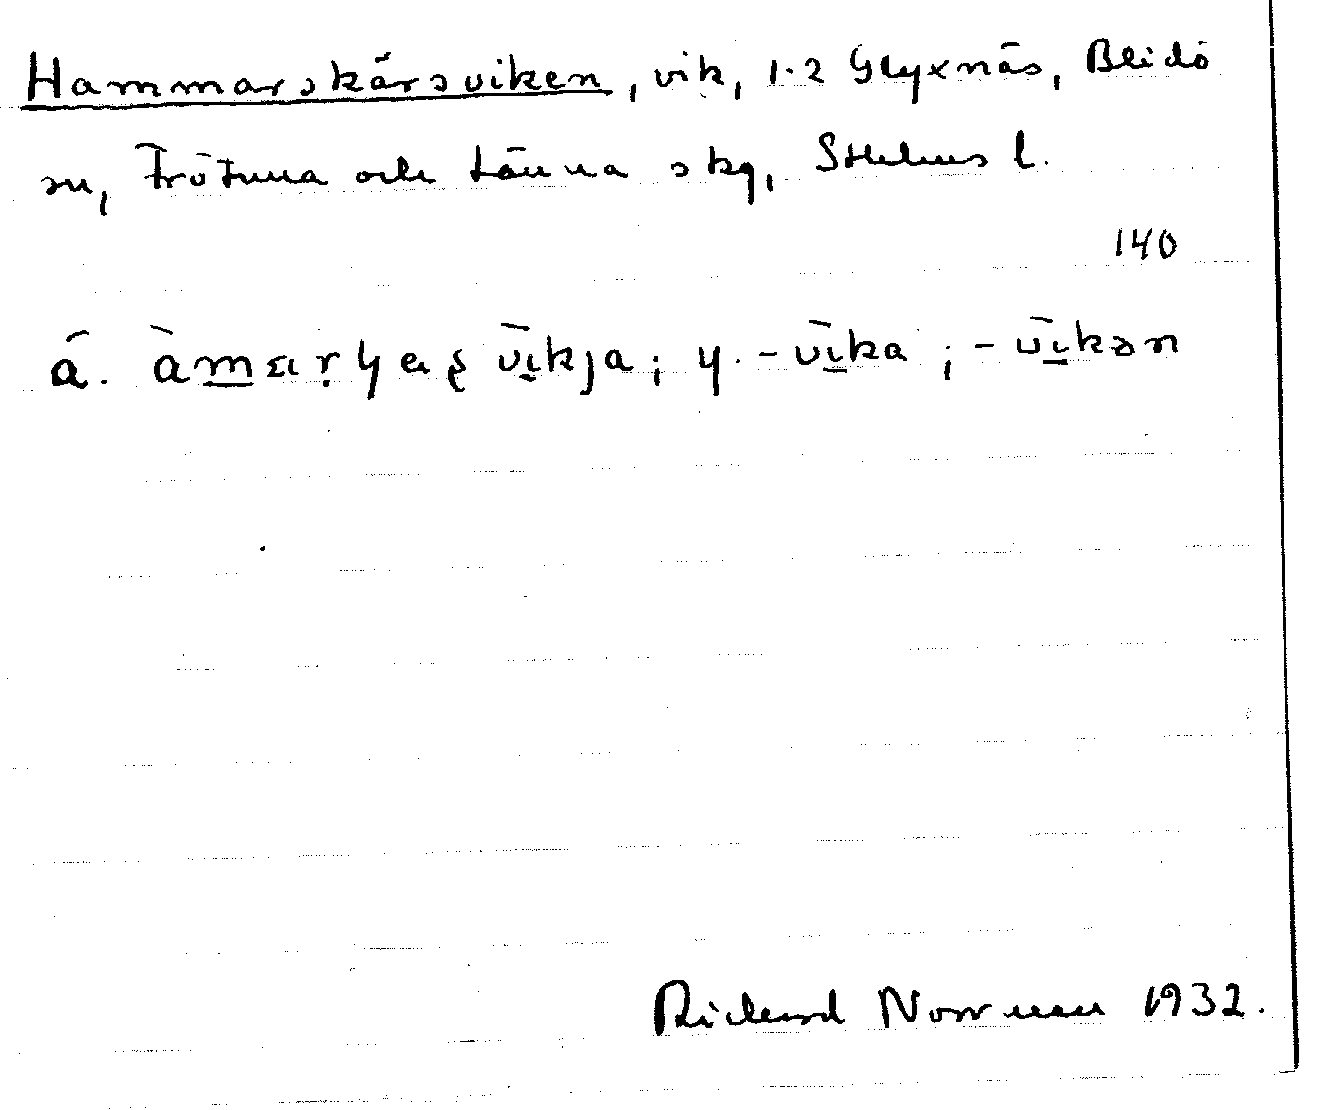 Hammarskärsviken, vik, 1·2 Glyxnäs, Blidö
sn, Frötuna och Länna skg, Sthlms l.
140
ä. v̄ikja; y. -v̄ika; -v̄ikən
Rickard Norrman 1932.